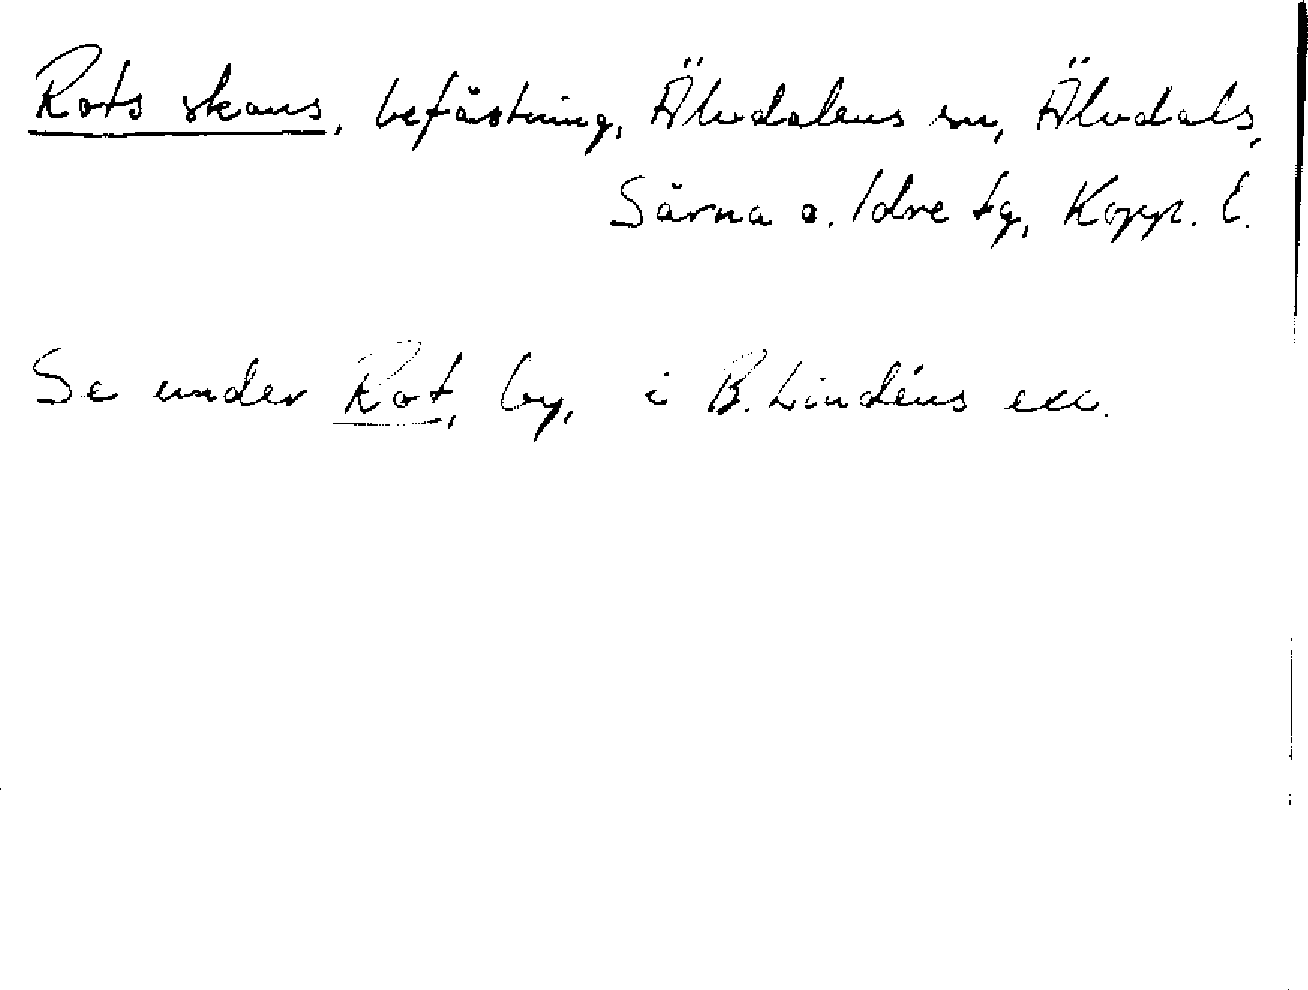 Rots skans, befästning, Älvdalens sn, Älvdals,
Särna o. Idre tg, Kopp. l.
Se under Rot, by, i B. Lindéns exc.